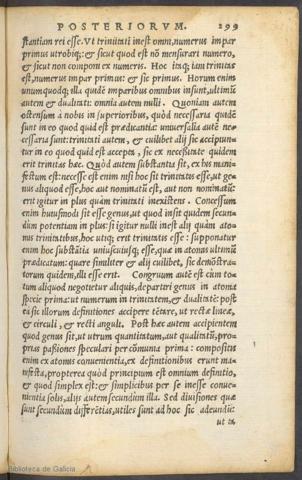 POSTERIORVM. 299
stantiam rei esse. Vt trinitati inest omni, numerus impar
primus utrobiq;: & sicut quod est nō mensurari numero,
& sicut non componi ex numeris. Hoc itaq; iam trinitas
est, numerus impar primus: & sic primus. Horum enim
unumquodq; illa quidē imparibus omnibus insunt, ultimū
autem & dualitati: omnia autem nulli. Quoniam autem
ostensum à nobis in superioribus, quòd necessaria quidē
sunt in eo quod quid est prædicantia: uniuersalia autē ne-
cessaria sunt: trinitati autem, & cuilibet alij sic accipiun-
tur in eo quod quid est accepta, sic ex necessitate quidem
erit trinitas hæc. Quòd autem substantia sit, ex his mani-
festum est: necesse est enim nisi hoc sit trinitatis esse, ut ge-
nus aliquod esse, hoc aut nominatū est, aut non nominatū:
erit igitur in plus quàm trinitati inexistens. Concessum
enim huiusmodi sit esse genus, ut quod insit quidem secun-
dum potentiam in plus: si igitur nulli inest alij quàm ato-
mis trinitatibus, hoc utiq; erit trinitatis esse: supponatur
enim hoc substātia uniuscuiusq; esse, quæ in atomis ultimū
prædicatum: quare similiter & alij cuilibet, sic demonstra-
torum quidem, illi esse erit. Congruum autē est cùm to-
tum aliquod negotietur aliquis, departiri genus in atoma
specie prima: ut numerum in trinitatem, & dualitatē: post
ea sic illorum definitiones accipere tētare, ut rectæ lineæ,
& circuli, & recti anguli. Post hæc autem accipientem
quod genus sit, ut utrum quantitatum, aut qualitatū, pro-
prias passiones speculari per cōmunia prima: compositis
enim ex atomis conuenientia, ex definitionibus erunt ma-
nifesta, propterea quòd principium est omnium definitio,
& quod simplex est: & simplicibus per se inesse conue-
nientia solis, alijs autem secundum illa. Sed diuisiones quæ
sunt secundùm differētias, utiles sunt ad hoc sic adeundū:
Biblioteca de Galicia